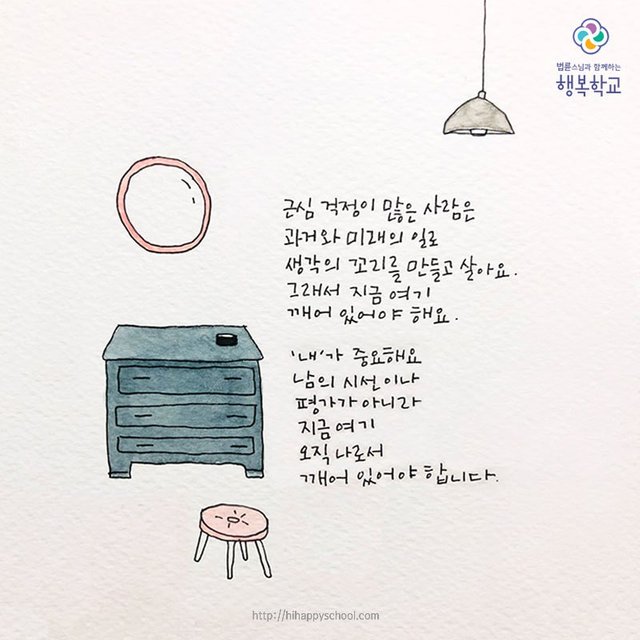 법륜스님과 함께하는
행복학교
근심 걱정이 많은 사람은
과거와 미래의 일로
생각의 꼬리를 만들고 살아요.
그래서 지금 여기
깨어 있어야 해요.
'내'가 중요해요
남의 시선이나
평가가 아니라
지금 여기
오직 나로서
깨어 있어야 합니다.
http://hihappyschool.com